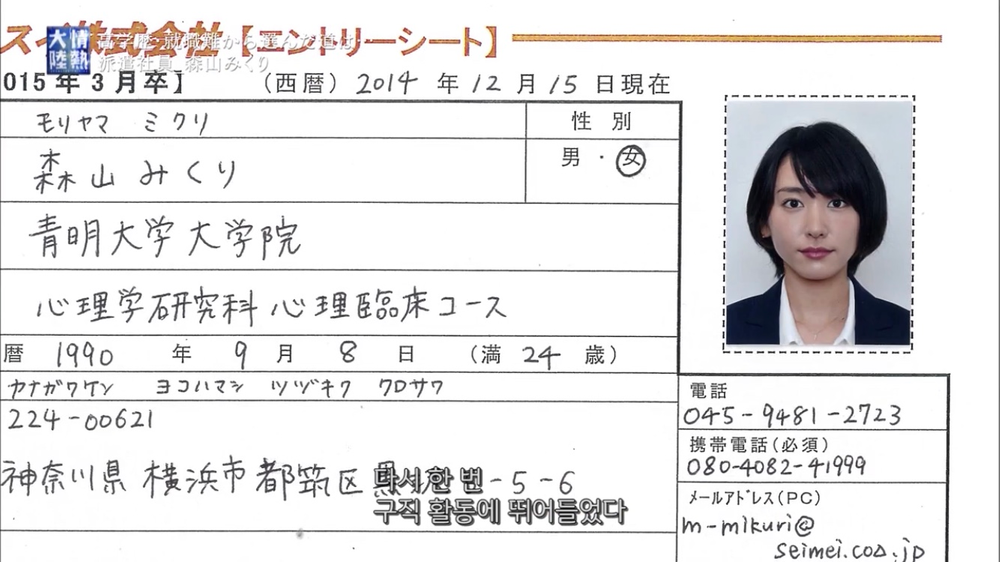 スイ株式会社【エントリーシート】
情熱大陸 高学歴・就職難から選んだ道は
派遣社員 森山みくり
015年3月卒】 (西暦) 2014 年 12 月 15 日現在
モリヤマ ミクリ 性 別
森山みくり 男・女
青明大学大学院
心理学研究科 心理臨床コース
暦 1990 年 9 月 8 日 (満 24 歳)
カナガワケン ヨコハマシ ツヅキク クロサワ
224-00621
神奈川県 横浜市 都筑区 -5-6
電話
045-9481-2723
携帯電話(必須)
080-4082-41999
メールアドレス(PC)
m-mikuri@
seimei.co△.jp
다시 한 번
구직 활동에 뛰어들었다